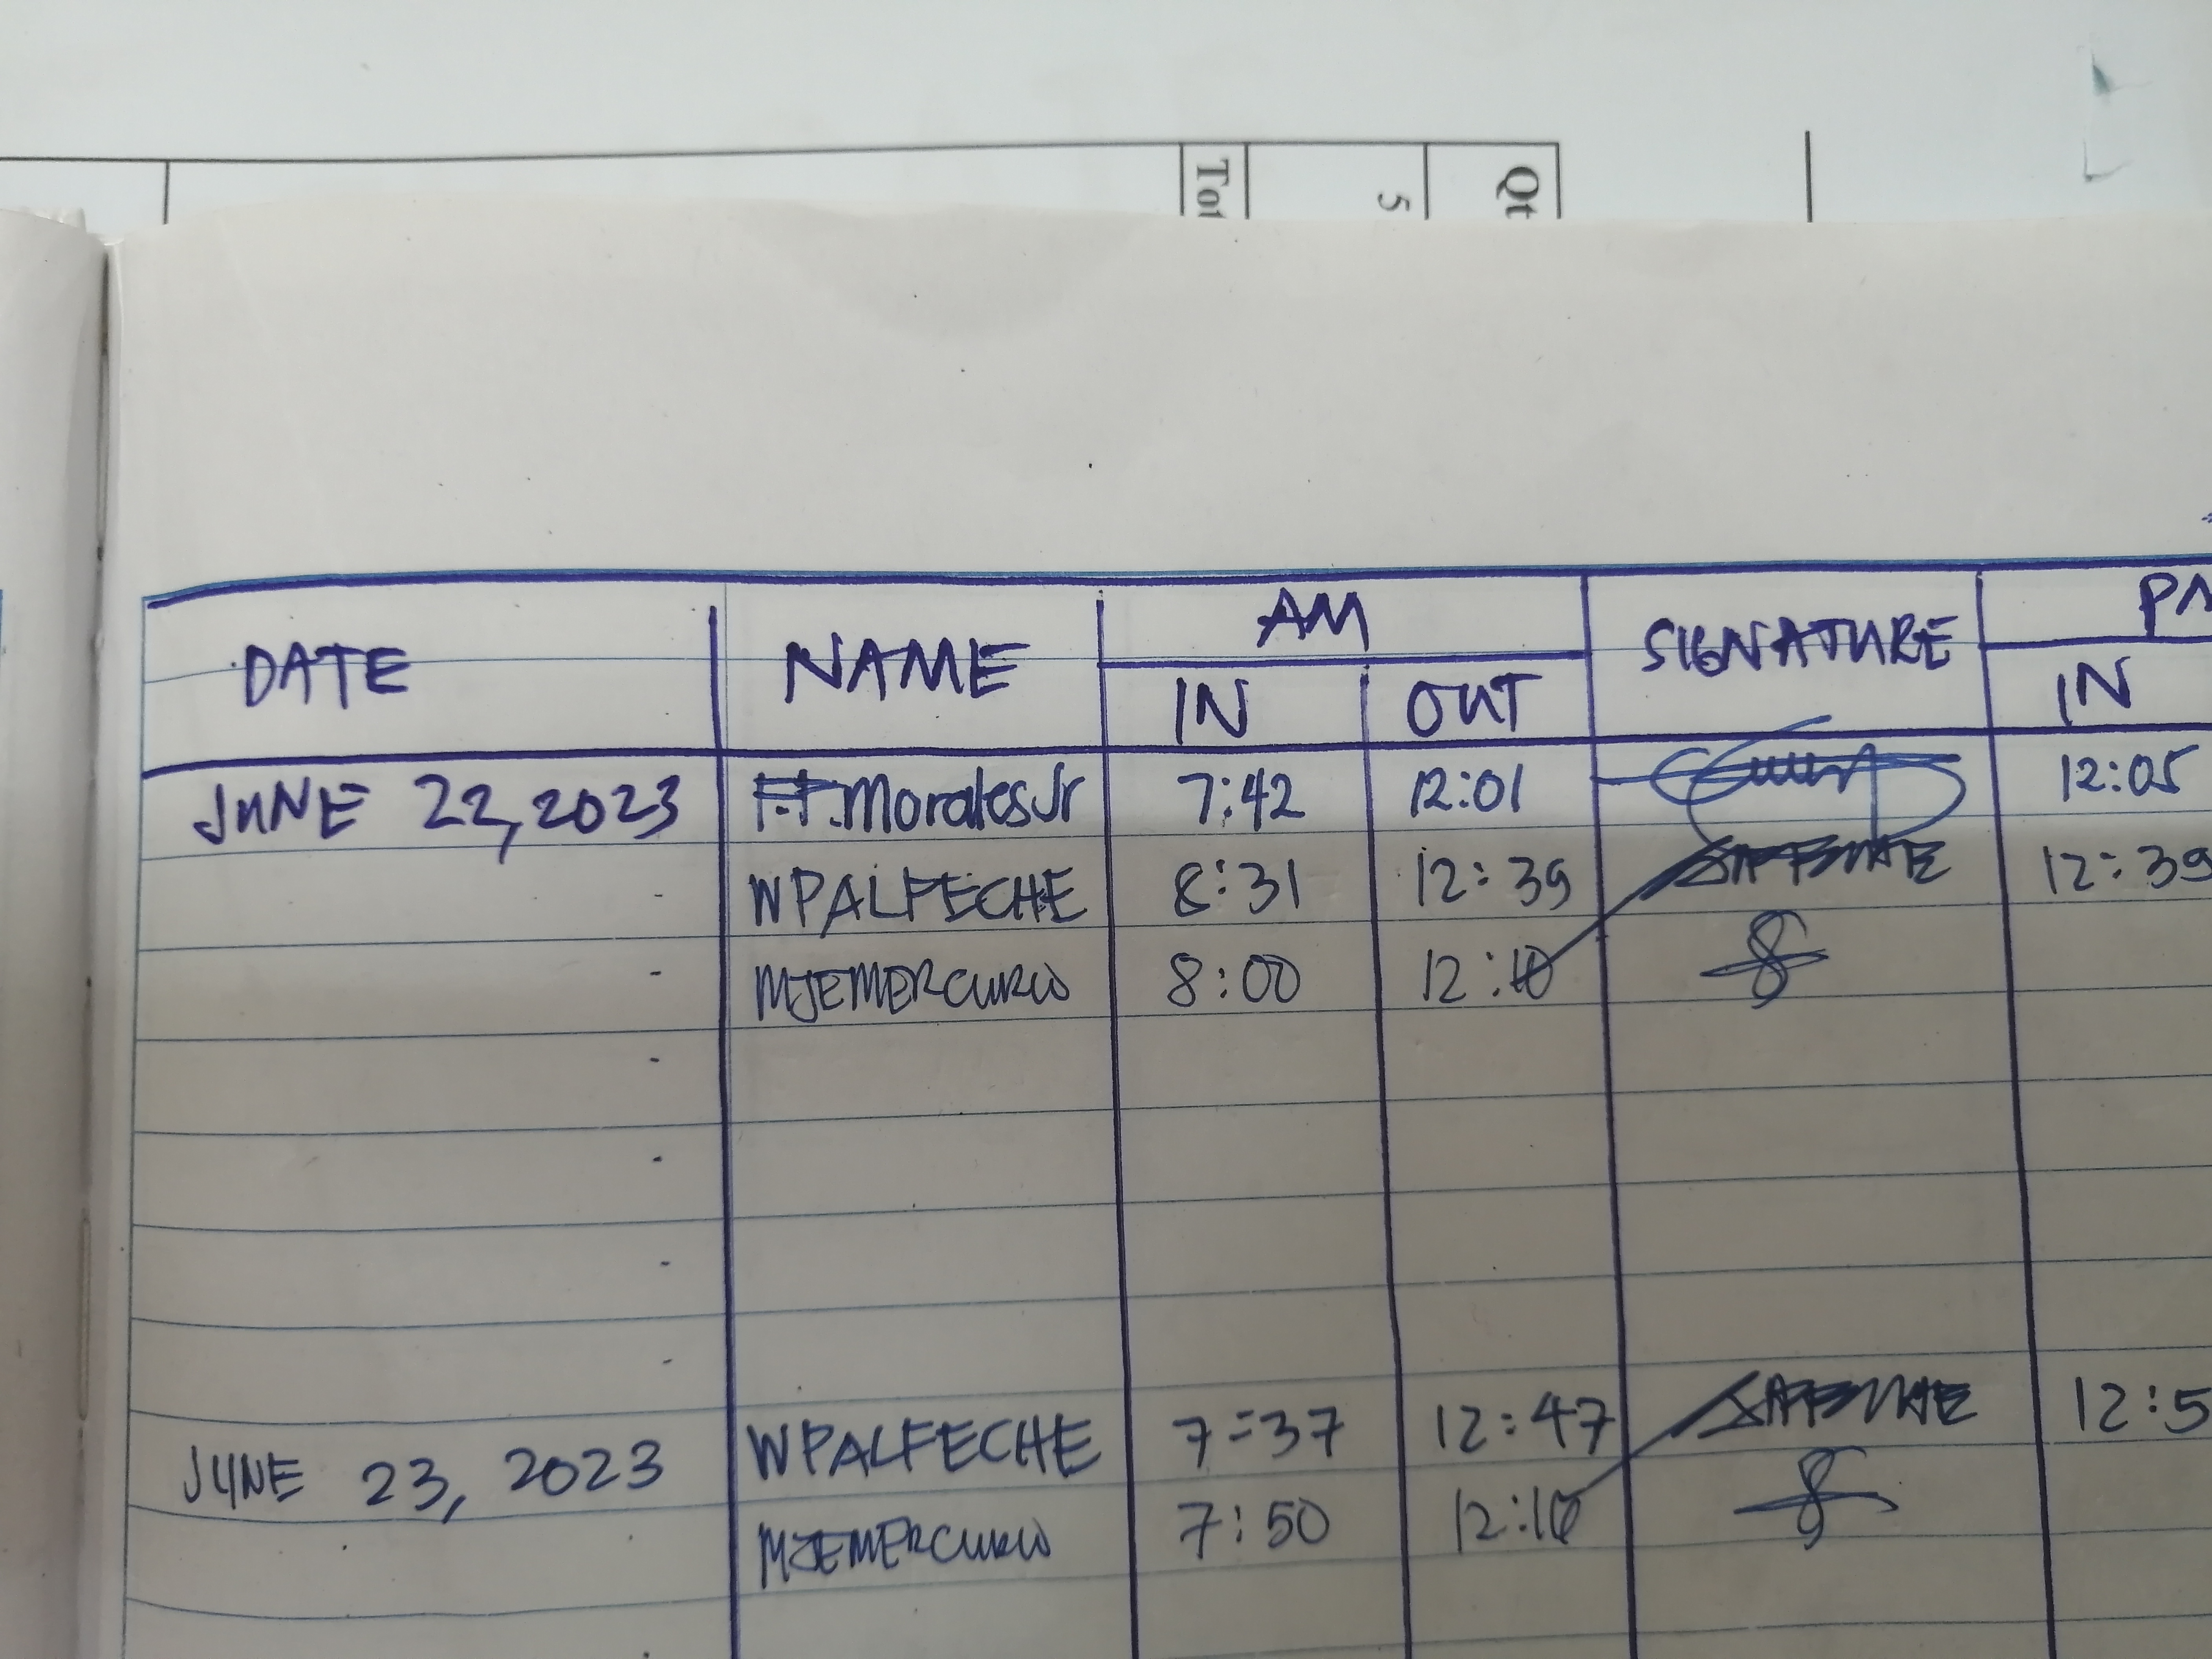 Tot 5 Qt
DATE NAME AM SIGNATURE
IN OUT IN
JUNE 22, 2023 F.F. Morales Jr 7:42 12:01 12:05
WPALFECHE 8:31 12:39 12:39
MJEMERCURIO 8:00 12:10
JUNE 23, 2023 WPALFECHE 7:37 12:47 12:5
MJEMERCURIO 7:50 12:10